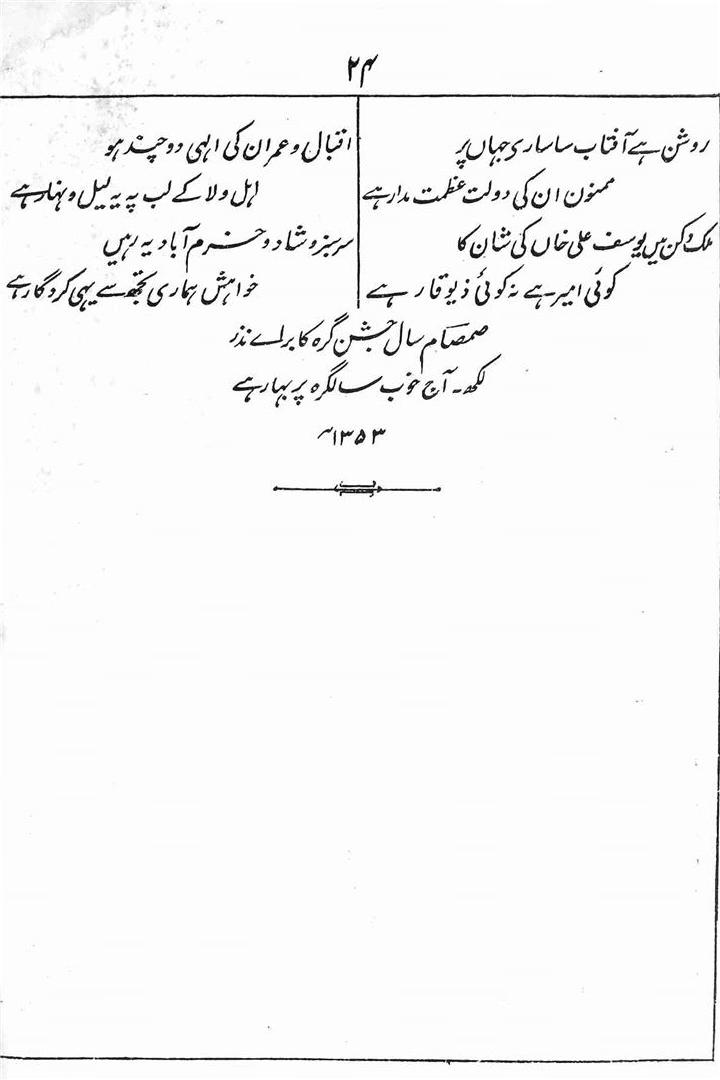 ۲۴
روشن ہے آفتاب سا ساری جہاں پر
ممنون ان کی دولت عظمت مدار ہے
ملک دکن میں یوسف علی خاں کی شان کا
کوئی امیر ہے نہ کوئی ذیوقار ہے
اقبال و عمران کی الہی دو چند ہو
اہل ولا کے لب پہ یہ لیل و نہار ہے
سرسبز و شاد و خرم آباد یہ رہیں
خواہش ہماری تجھ سے یہی کردگار ہے
صمصام سال جشن گرہ کا براے نذر
لکھ۔ آج خوب سالگرہ پر بہار ہے
۱۳۵۳